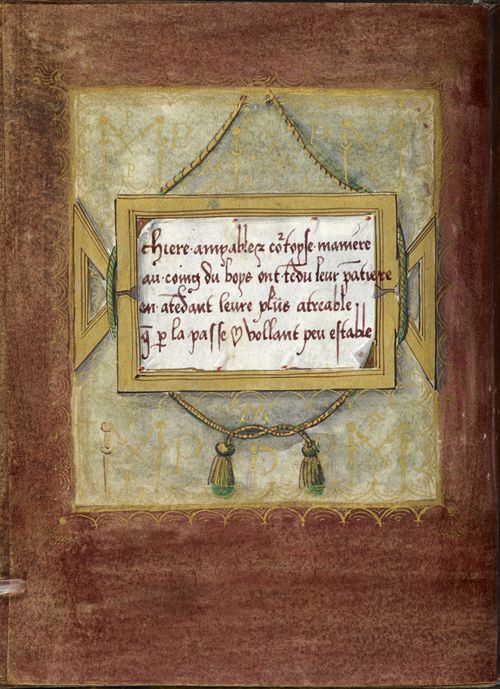 Chiere·amyable⁊ co͛toyse·maniere
au·coing du boys ont tẽdu leur pãtiere
en·atẽdant leure plus agreable
q̃ ꝑ la passe ♡ vollant peu estable